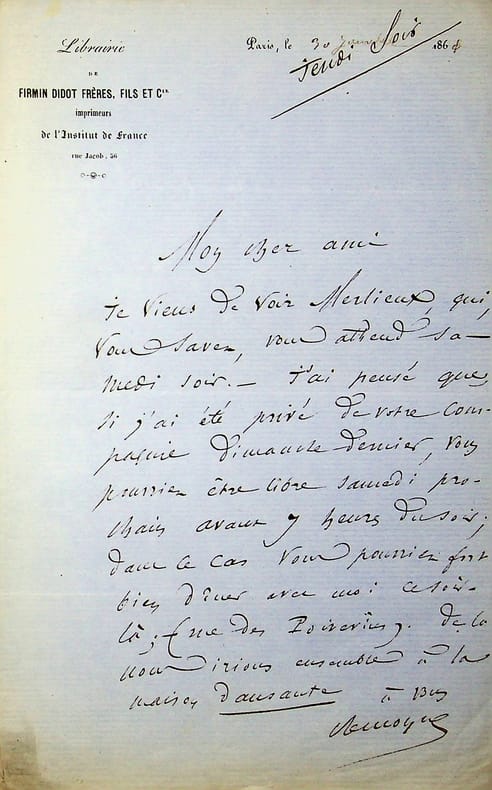 Librairie
DE
FIRMIN DIDOT FRÈRES, FILS ET Cie
imprimeurs
de l'Institut de France
rue Jacob, 56
Paris, le 30 186
Jeudi Soir
Mon cher ami
Je viens de voir Merlieux, qui,
vous savez, vous attend sa-
medi soir. - J'ai pensé que
si j'ai été privé de votre com-
pagnie dimanche dernier, vous
pourriez être libre samedi pro-
chain avant 7 heures du soir;
dans ce cas vous pourriez fort
bien dîner avec moi ce soir-
là, (rue des Poirées). De là
nous irions ensemble à la
maison dansante
à vous